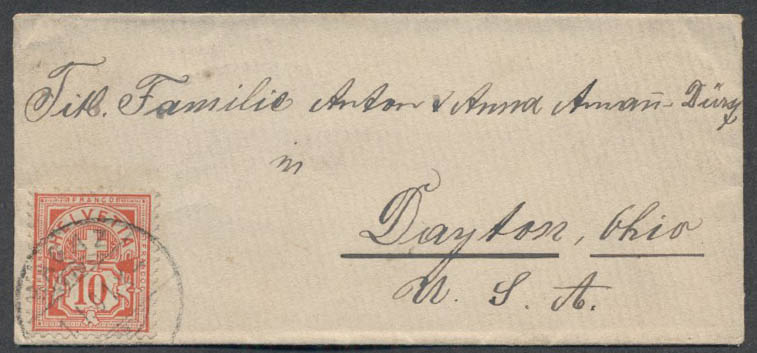 Titl. Familie Anton & Anna Amañ-Dürg
in
Dayton, Ohio
U. S. A.
FRANCO
HELVETIA
FRANCO
FRANCO
10